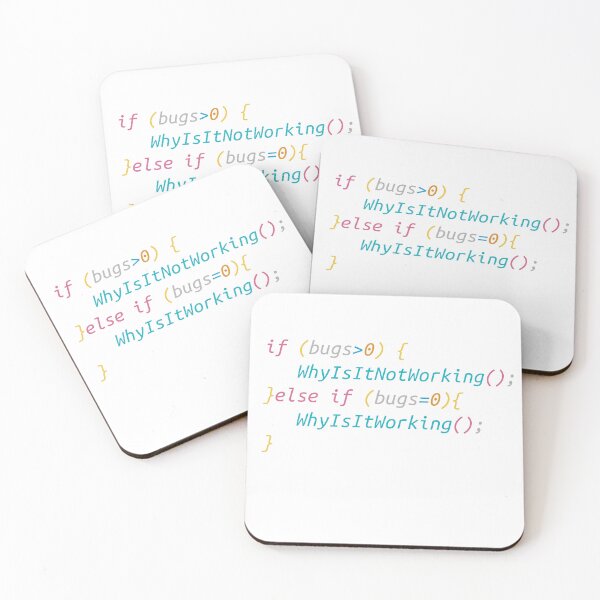 if (bugs>0) {
WhyIsItNotWorking();
}else if (bugs=0){
WhyIsItWorking()
}
if (bugs>0) {
WhyIsItNotWorking();
}else if (bugs=0){
WhyIsItWorking();
}
if (bugs>0) {
WhyIsItNotWorking();
}else if (bugs=0){
WhyIsItWorking();
}
if (bugs>0) {
WhyIsItNotWorking();
}else if (bugs=0){
WhyIsItWorking();
}